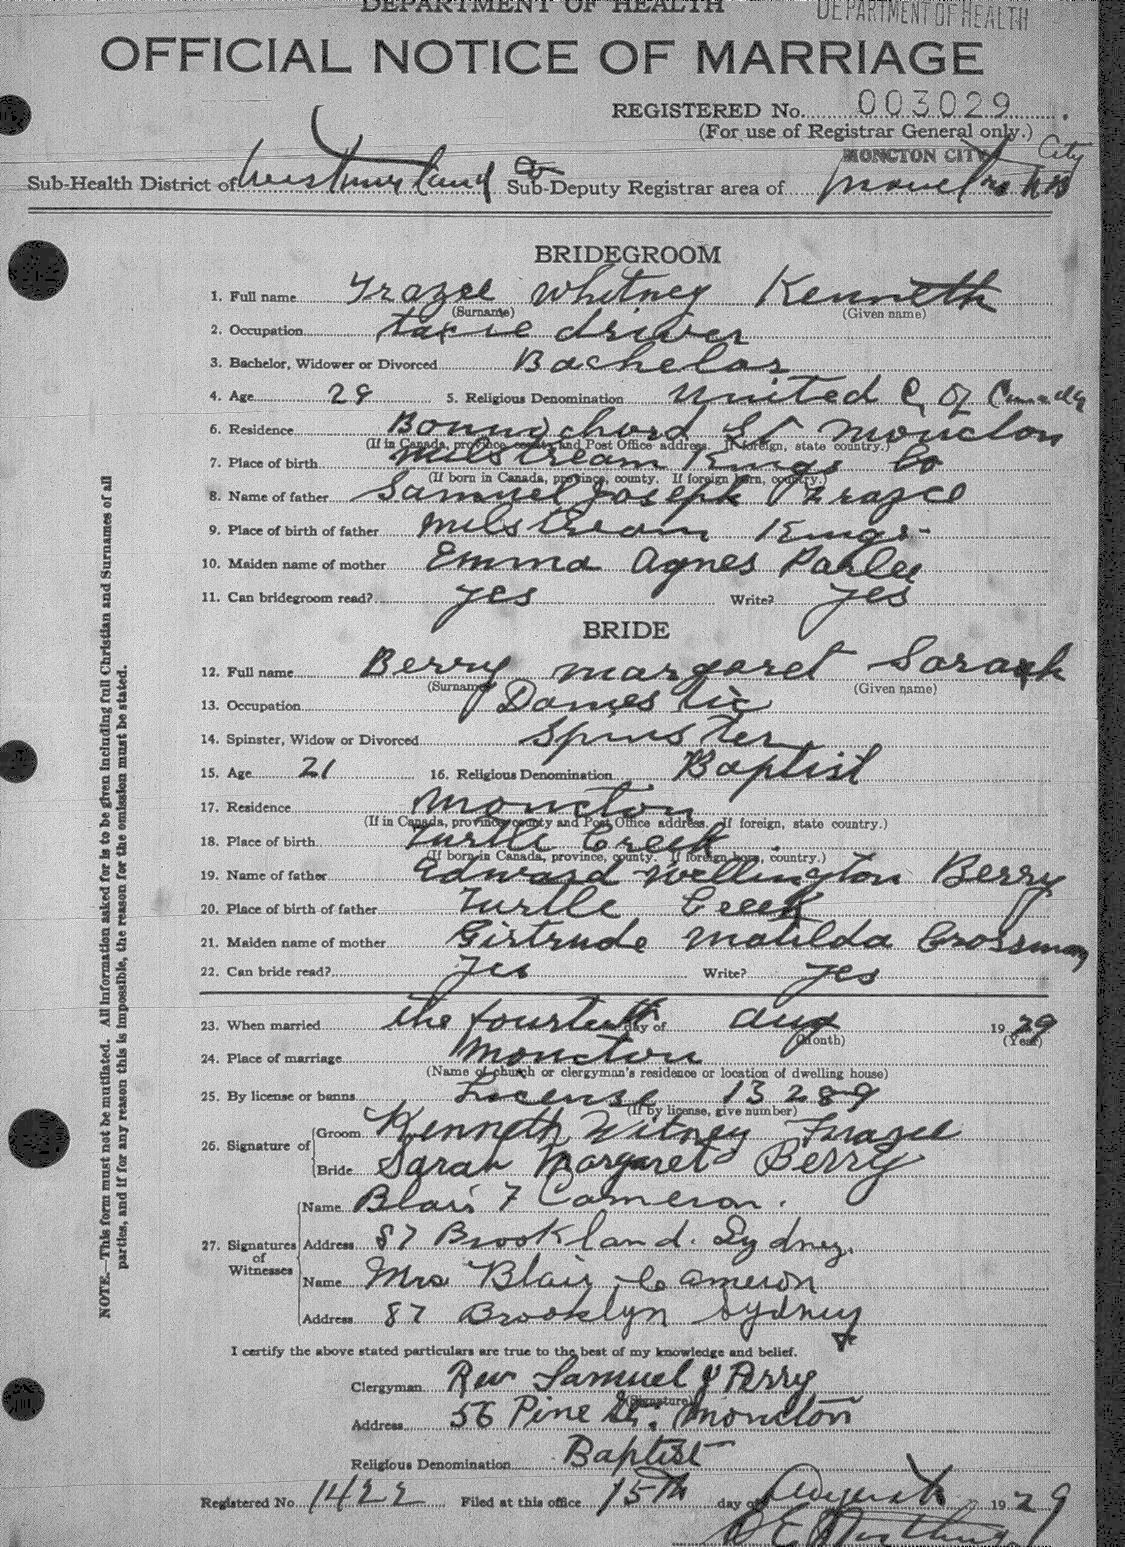 DEPARTMENT OF HEALTH
DEPARTMENT OF HEALTH
OFFICIAL NOTICE OF MARRIAGE
REGISTERED No. 003029
(For use of Registrar General only.)
MONCTON CITY City
Sub-Health District of Westmorland Co Sub-Deputy Registrar area of Moncton NB
BRIDEGROOM
1. Full name Frazee Whitney Kenneth
(Surname) (Given name)
2. Occupation taxie driver
3. Bachelor, Widower or Divorced Bachelor
4. Age 28 5. Religious Denomination United C. of Canada
6. Residence St Moncton
(If in Canada, province, county and Post Office address. If foreign, state country.)
7. Place of birth Milstream Kings Co
(If born in Canada, province, county. If foreign born, country.)
8. Name of father Samuel Joseph Frazee
9. Place of birth of father Milstream Kings
10. Maiden name of mother Emma Agnes Parlee
11. Can bridegroom read? yes Write? yes
BRIDE
12. Full name Berry Margaret Sarah
(Surname) (Given name)
13. Occupation Domestic
14. Spinster, Widow or Divorced Spinster
15. Age 21 16. Religious Denomination Baptist
17. Residence Moncton
(If in Canada, province, county and Post Office address. If foreign, state country.)
18. Place of birth Turtle Creek
(If born in Canada, province, county. If foreign born, country.)
19. Name of father Edward Wellington Berry
20. Place of birth of father Turtle Creek
21. Maiden name of mother Girtrude Matilda Crossman
22. Can bride read? yes Write? yes
23. When married the fourteenth day of Aug 1929
(Month) (Year)
24. Place of marriage Moncton
(Name of church or clergyman's residence or location of dwelling house)
25. By license or banns License 13289
(If by license, give number)
26. Signature of
Groom Kenneth Witney Frazee
Bride Sarah Margaret Berry
27. Signatures of Witnesses
Name Blair F Cameron.
Address 87 Brookland. Sydney.
Name Mrs Blair Cameron
Address 87 Brooklyn Sydney
I certify the above stated particulars are true to the best of my knowledge and belief.
Clergyman Rev Samuel J Perry
(Signature)
Address 56 Pine St. Moncton
Religious Denomination Baptist
Registered No. 1422 Filed at this office 15th day of August 1929
NOTE.—This form must not be mutilated. All information asked for is to be given including full Christian and Surnames of all
parties, and if for any reason this is impossible, the reason for the omission must be stated.